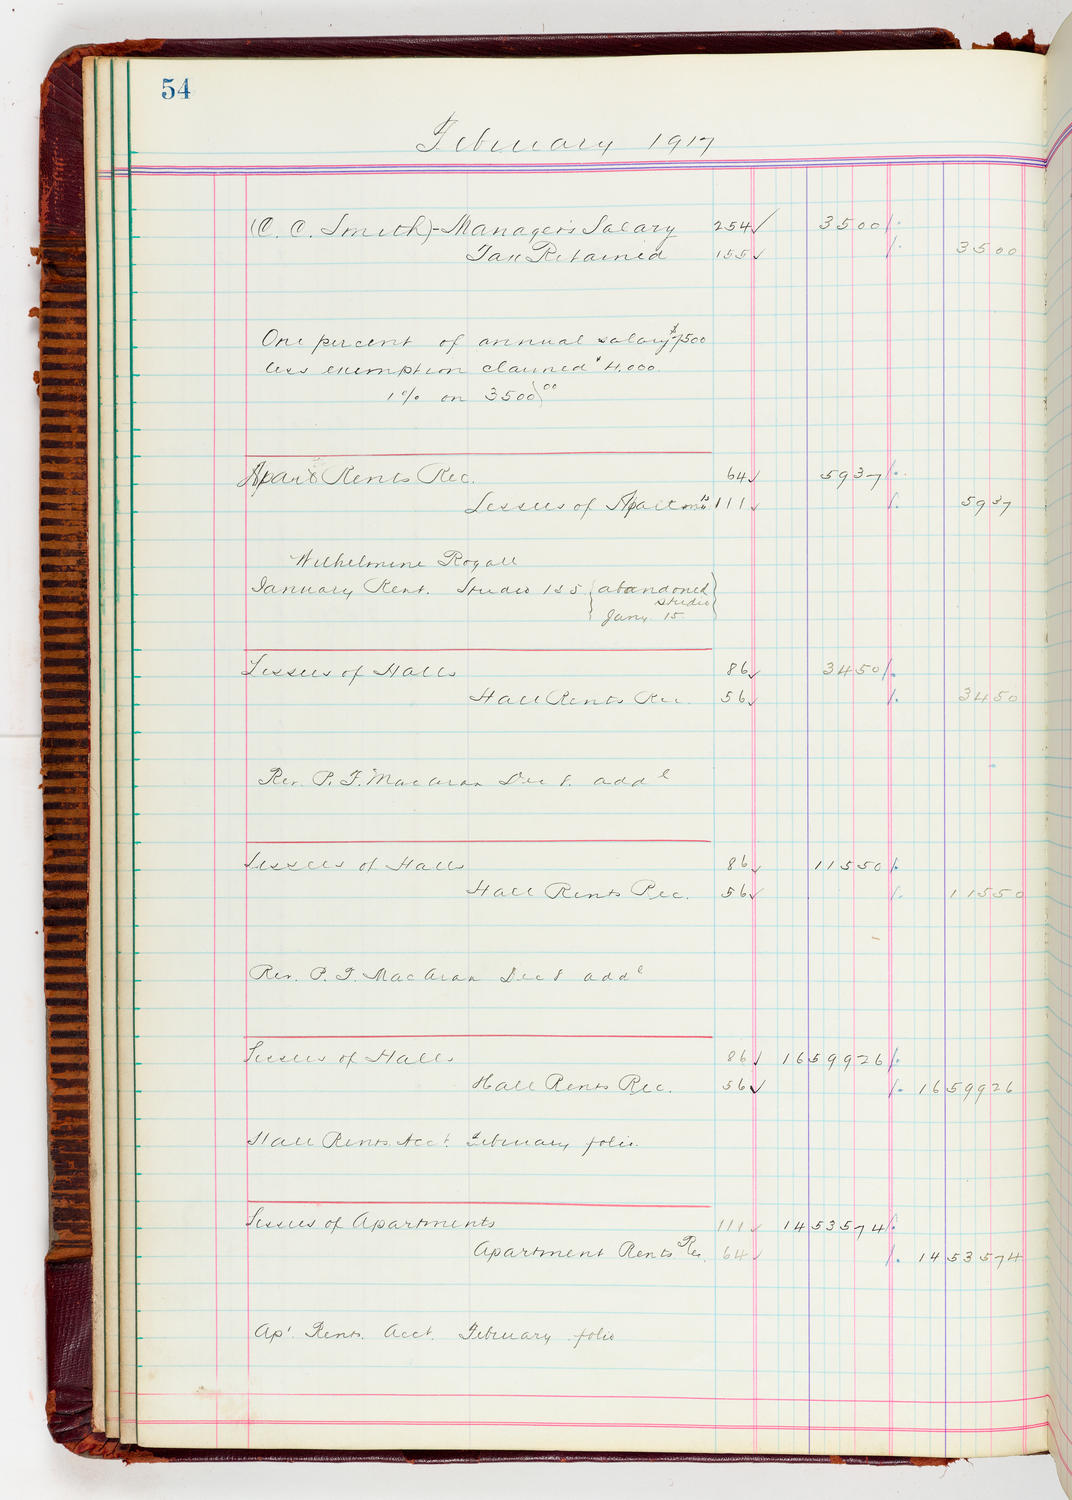 54
February 1917
(C. C. Smith)-Manager's Salary 254 ✓ 3500
Tax Retained 155 ✓ 3500
One percent of annual salary $7500
less exemption claimed $4,000.
1% on 3500 00
Apart Rents Rec. 64 ✓ 5937
Lessees of Apartmts 111 ✓ 5937
Wilhelmine Rogall
January Rent. Studio 155 {abandoned
studio
Jany 15}
Lessees of Halls 86 ✓ 3450
Hall Rents Rec. 56 ✓ 3450
Rev. P. F. MacAran Dec 8. addl
Lessees of Halls 86 ✓ 11550
Hall Rents Rec. 56 ✓ 11550
Rev. P. F. MacAran Dec 8 addl
Lessees of Halls 86 ✓ 1659926
Hall Rents Rec. 56 ✓ 1659926
Hall Rents Acct. February folio.
Lessees of Apartments 111 ✓ 1453574
Apartment Rents Rec. 64 ✓ 1453574
Apt. Rents. Acct. February folio